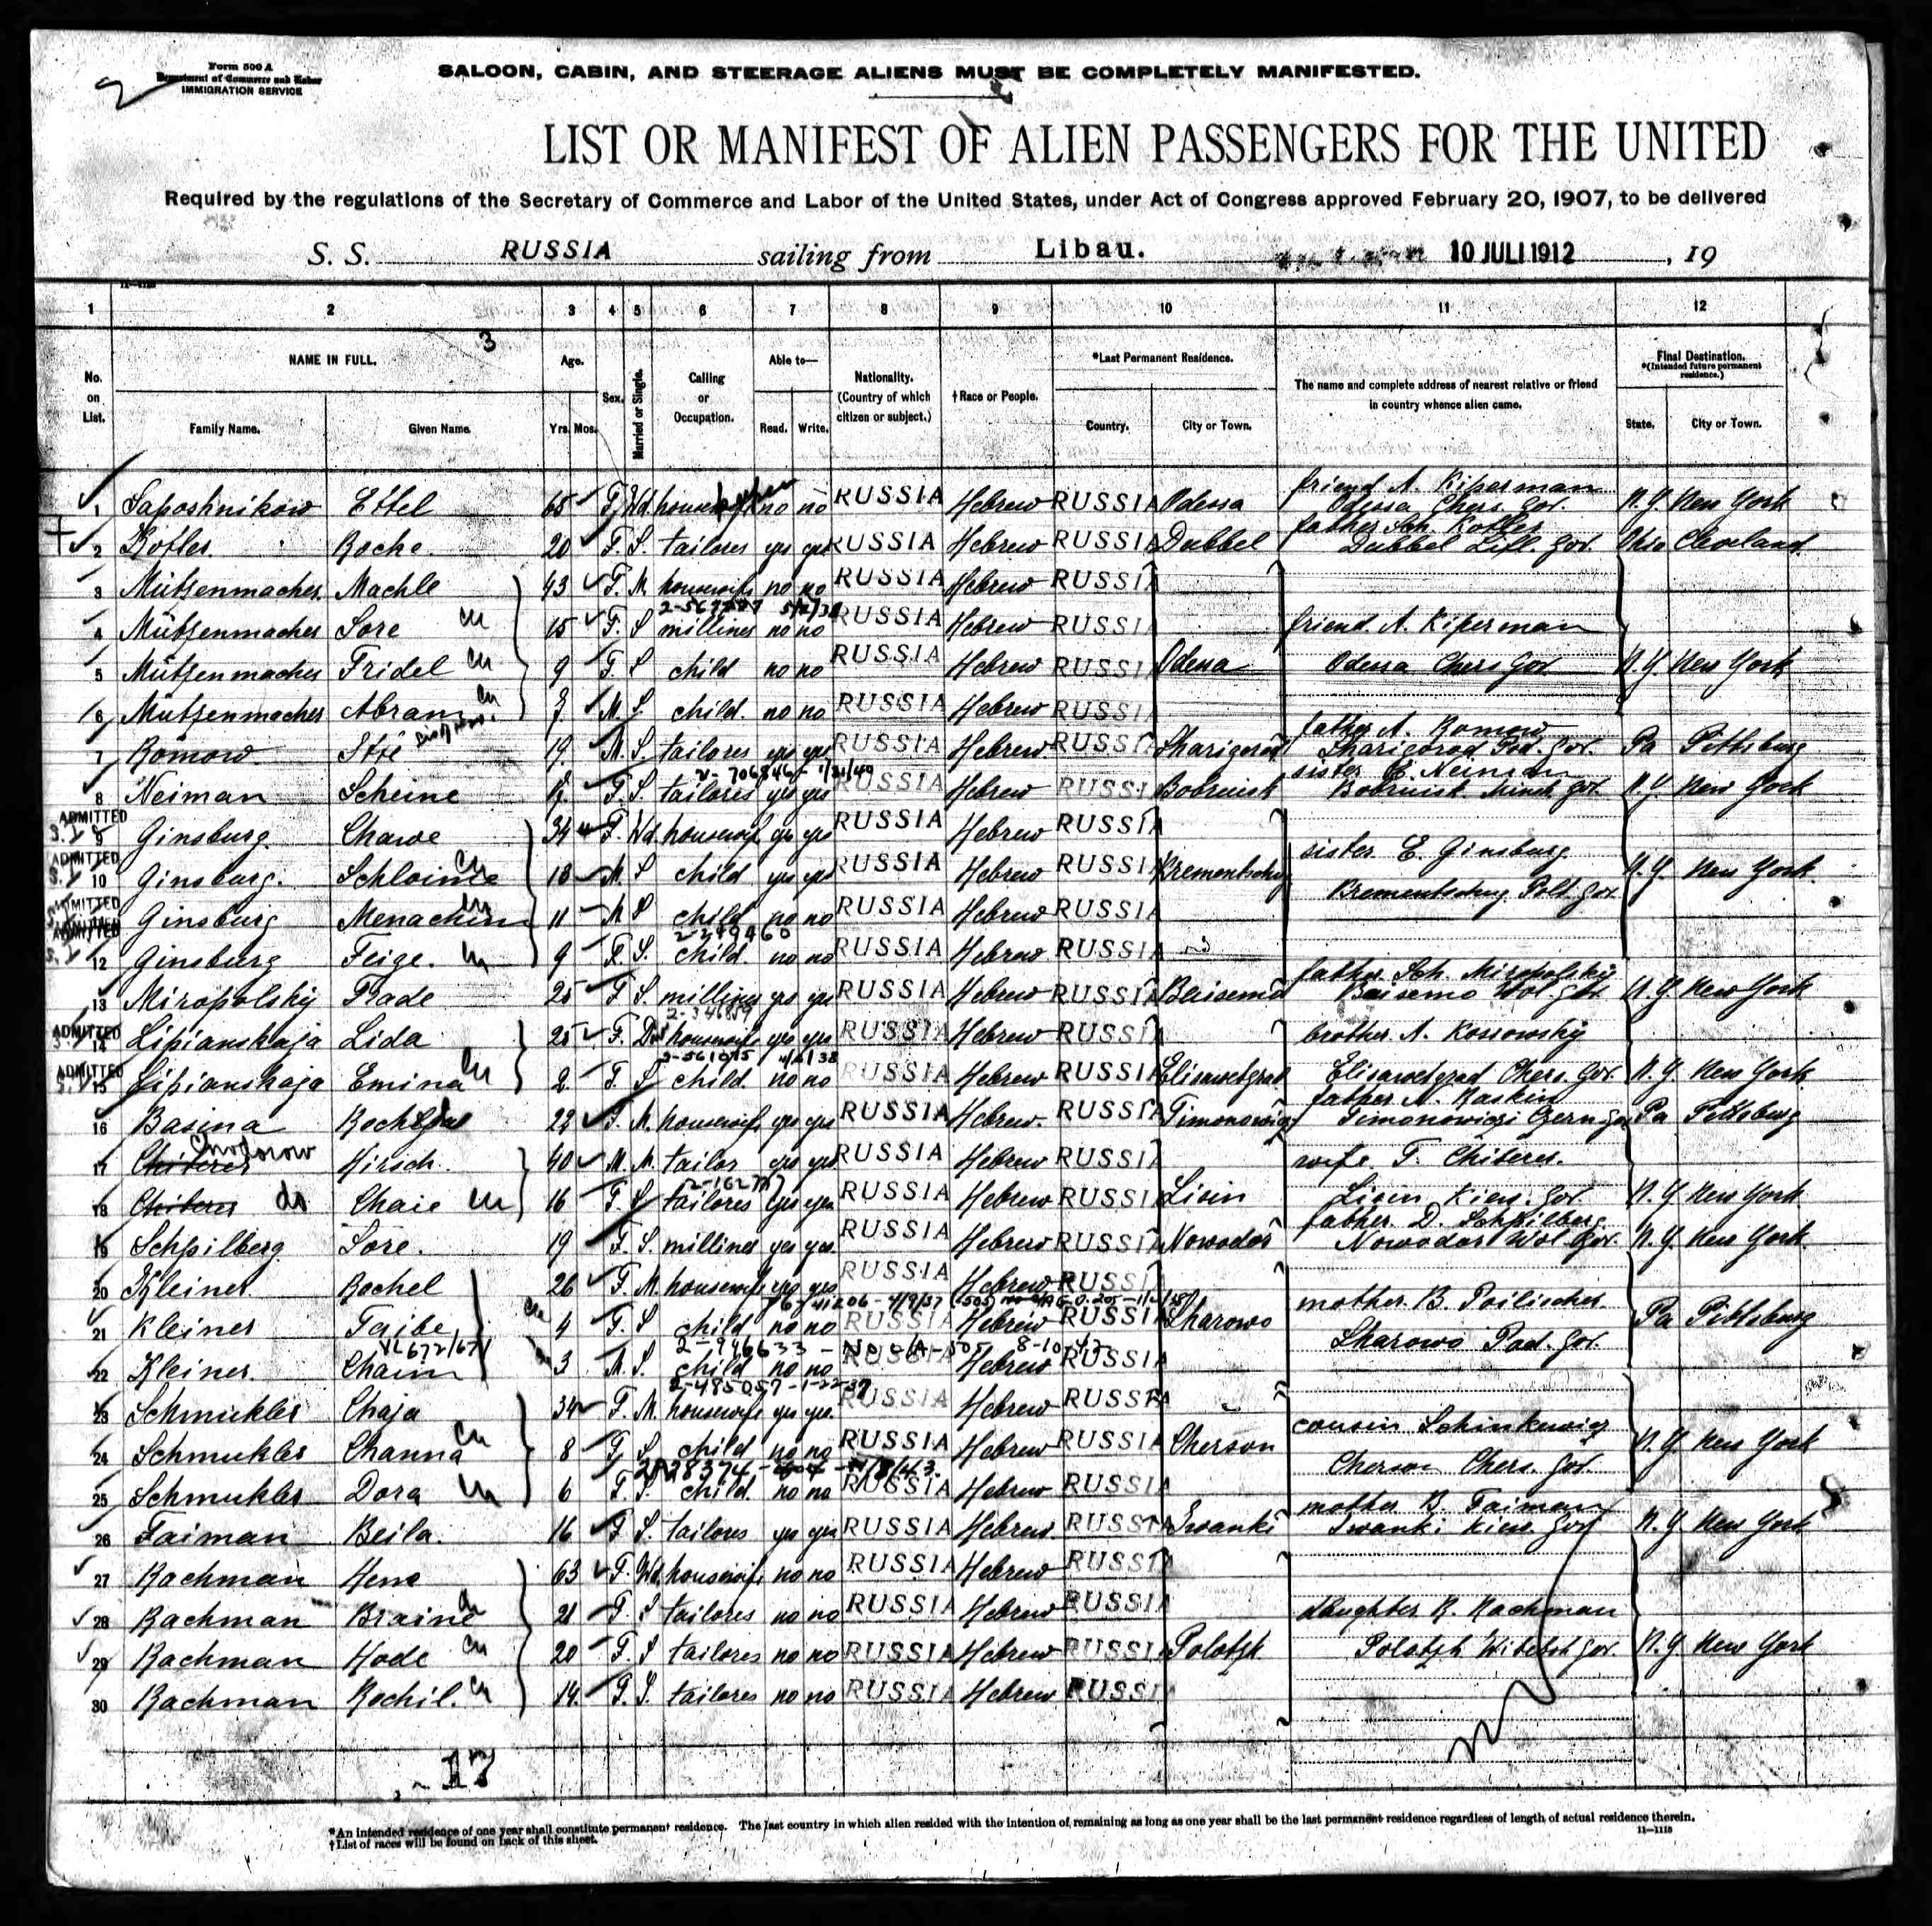 2
Form 500 A
Department of Commerce and Labor
IMMIGRATION SERVICE
SALOON, CABIN, AND STEERAGE ALIENS MUST BE COMPLETELY MANIFESTED.
LIST OR MANIFEST OF ALIEN PASSENGERS FOR THE UNITED
Required by the regulations of the Secretary of Commerce and Labor of the United States, under Act of Congress approved February 20, 1907, to be delivered
S. S. RUSSIA sailing from Libau. 10 JULI 1912, 19
1 2 3 4 5 6 7 8 9 10 11 12
3
No. on List. NAME IN FULL. Family Name. Given Name. Age. Yrs. Mos. Sex. Married or Single. Calling or Occupation. Able to— Read. Write. Nationality. (Country of which citizen or subject.) †Race or People. *Last Permanent Residence. Country. City or Town. The name and complete address of nearest relative or friend in country whence alien came. Final Destination. *(Intended future permanent residence.) State. City or Town.
1 Saposhnikow Ettel 65 F. Wd. no no RUSSIA Hebrew RUSSIA Odessa friend A. Kiperman Odessa Chers. Gov. N.Y. New York
2 Kotler Roche 20 F. S. tailores yes yes RUSSIA Hebrew RUSSIA Dubbel father Sch. Kotler Dubbel Lifl. Gov. Ohio Cleveland
3 Mützenmacher Machle 43 F. M. housewife no no RUSSIA Hebrew RUSSIA
4 Mützenmacher Sore 15 F. S. milliner no no RUSSIA Hebrew RUSSIA friend A. Kiperman
5 Mützenmacher Fridel 9 F. S. child no no RUSSIA Hebrew RUSSIA Odessa Odessa Chers Gov. N.Y. New York
6 Mützenmacher Abram 7 M. S. child. no no RUSSIA Hebrew RUSSIA
7 Romow Itte 19 M. S. tailores yes yes RUSSIA Hebrew RUSSIA Sharigorod father A. Romow Sharigorod Pod. Gov. Pa Pittsburg
2-706846-1/31/40
8 Neiman Scheine 17 F. S. tailores yes yes RUSSIA Hebrew RUSSIA Bobruisk sister E. Neiman Bobruisk Minsk Gov. N.Y. New York
ADMITTED S.I. 9 Ginsburg Chawe 34 F. Wd. housewife yes yes RUSSIA Hebrew RUSSIA
ADMITTED S.I. 10 Ginsburg. Schloime 13 M. S child yes yes RUSSIA Hebrew RUSSIA Krementschug sister E. Ginsburg Krementschug Polt. Gov. N.Y. New York
ADMITTED Ginsburg Menachim 11 M S child no no RUSSIA Hebrew RUSSIA
2-349460
ADMITTED S.I. 12 Ginsburg Feige. 9 F. S. child. no no RUSSIA Hebrew RUSSIA
13 Miropolsky Frade 25 F S. milliner yes yes RUSSIA Hebrew RUSSIA father Sch. Miropolsky Wol. Gov. N.Y. New York
2-346859
ADMITTED 14 Lipianskaja Lida 25 F. housewife yes yes RUSSIA Hebrew RUSSIA brother A. Kossowsky
2-561075 4/2/38
ADMITTED S.I. 15 Lipianskaja Emina 2 F. S child. no no RUSSIA Hebrew RUSSIA Elisawetgrad Elisawetgrad Chers. Gov. N.Y. New York
16 Basina 22 F. M. housewife yes yes RUSSIA Hebrew. RUSSIA father N. Raskin Timonowiczi Czern. Gov Pa Pittsburg
Chodorow
17 Chiterer Hirsch. 40 M. M. tailor yes yes RUSSIA Hebrew RUSSIA wife T. Chiterer.
18 Chiterer do Chaie 16 F. S tailores yes yes RUSSIA Hebrew RUSSIA Lisin Lisin Kiew. Gov. N.Y. New York
19 Schpilberg Sore. 19 F. S. milliner yes yes RUSSIA Hebrew RUSSIA Nowodor father D. Schpilberg Nowodor Wol. Gov. N.Y. New York
20 Kleiner Rochel 26 F. M. housewife yes yes RUSSIA Hebrew RUSSIA mother B. Poilischer.
21 Kleiner Taibe 4 F. S. child no no RUSSIA Hebrew RUSSIA Sharowo Sharowo Pod. Gov. Pa Pittsburg
22 Kleiner. Chaim 3 M. S. child no no RUSSIA Hebrew RUSSIA
2-485057-1-22-37
23 Schmukler Chaja 34 F. M. housewife yes yes RUSSIA Hebrew RUSSIA
24 Schmukler Channa 8 F. S. child no no RUSSIA Hebrew RUSSIA Cherson cousin Schinkewicz Cherson Chers. Gov. N.Y. New York
25 Schmukler Dora 6 F. S. child no no RUSSIA Hebrew RUSSIA
26 Faiman Beila. 16 F S. tailores yes yes RUSSIA Hebrew RUSSIA Iwanki mother B. Faiman Iwanki Kiew. Gov N.Y. New York
27 Rachman Hene 63 F. Wd. housewife no no RUSSIA Hebrew RUSSIA
28 Rachman Braine 21 F. S tailores no no RUSSIA Hebrew RUSSIA daughter R. Rachman
29 Rachman Hode 20 F. S tailores no no RUSSIA Hebrew RUSSIA Polotzk Polotzk Witebsk Gov. N.Y. New York
30 Rachman Rochil. 14. F. S. tailores no no RUSSIA Hebrew RUSSIA
17
*An intended residence of one year shall constitute permanent residence. The last country in which alien resided with the intention of remaining as long as one year shall be the last permanent residence regardless of length of actual residence therein.
†List of races will be found on back of this sheet.
11—1118